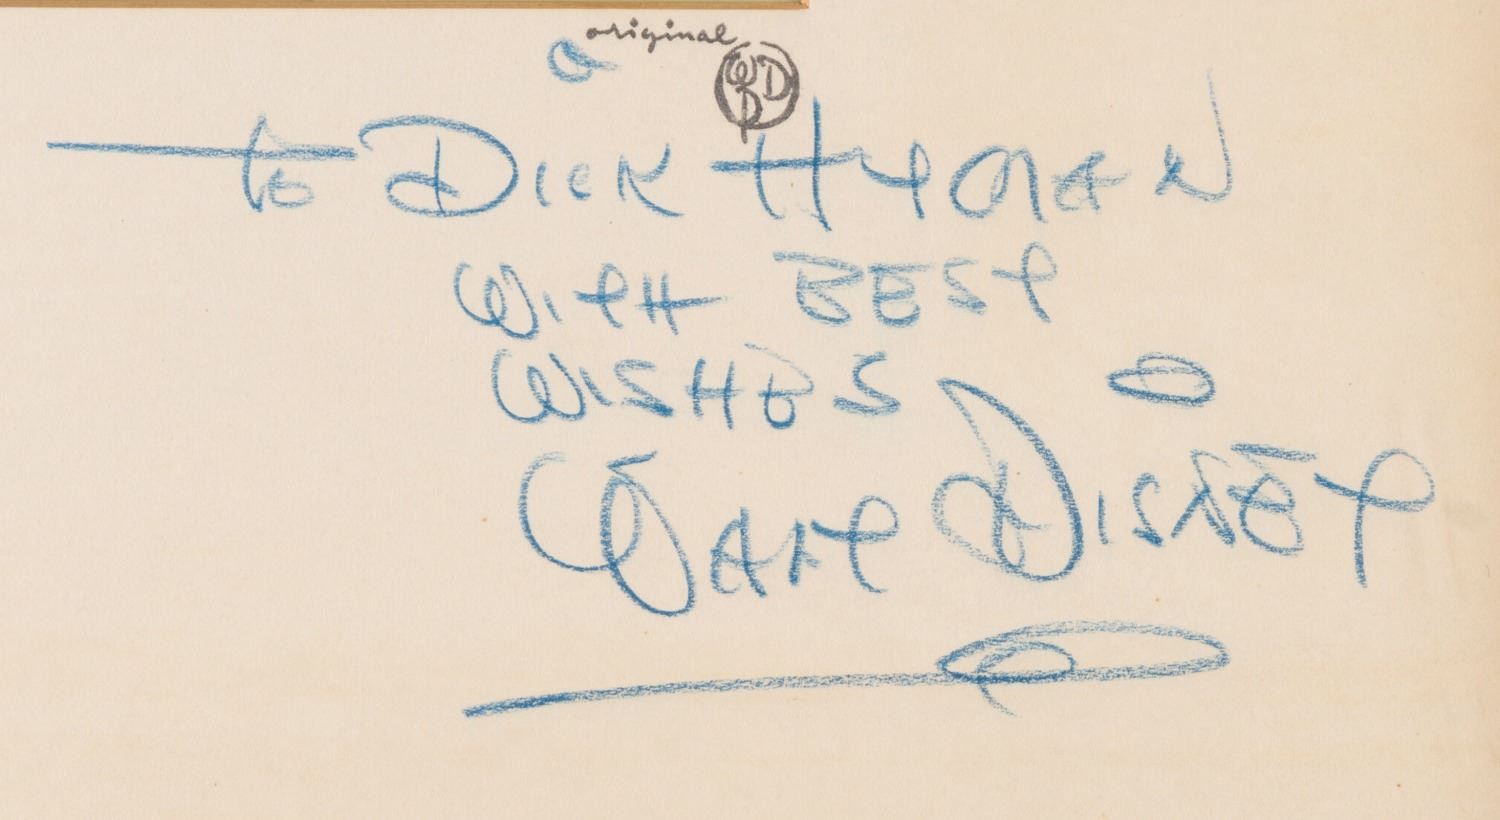 original WDP
To Dick Hyman
WITH BEST
WISHES
Walt Disney